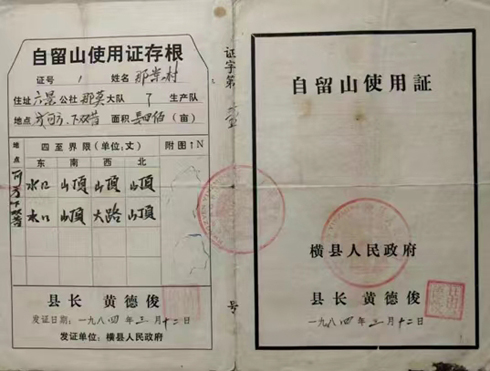 自留山使用证存根
证号 1 姓名 那莫村
住址 六景 公社 那莫 大队 了 生产队
地点 下双昔 面积 (亩)
地点 四至界限(单位:丈) 附图↑N
东 南 西 北
水口 山顶 山顶 山顶
水口 山顶 大路 山顶
县长 黄德俊
发证日期:一九八四年三月十二日
发证单位:横县人民政府
证字第
号
自留山使用証
横县人民政府
县长 黄德俊
一九八四年三月十二日